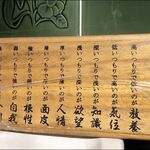 高いつもりで低いのが教養
低いつもりで高いのが気位
深いつもりで浅いのが知識
浅いつもりで深いのが欲望
厚いつもりで薄いのが人情
薄いつもりで厚いのが面皮
強いつもりで弱いのが根性
弱いつもりで強いのが自我